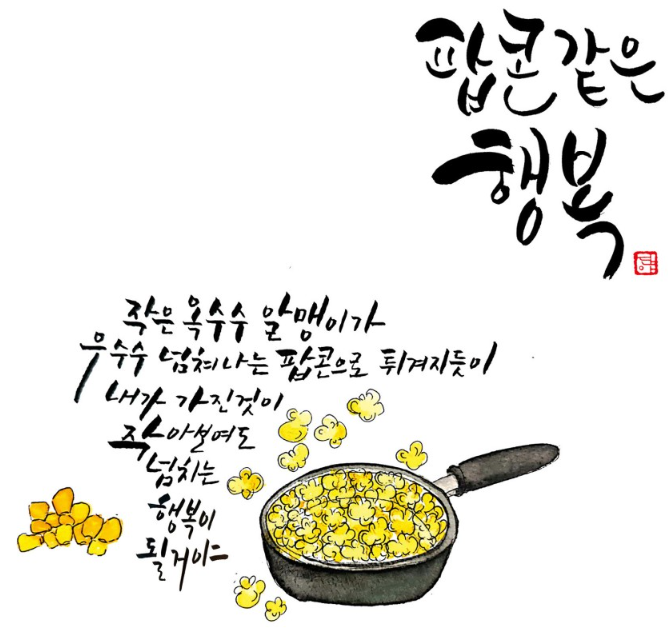 팝콘같은
행복
작은 옥수수 알맹이가
우수수 넘쳐나는 팝콘으로 튀겨지듯이
내가 가진것이
작아설여도
넘치는
행복이
될거야